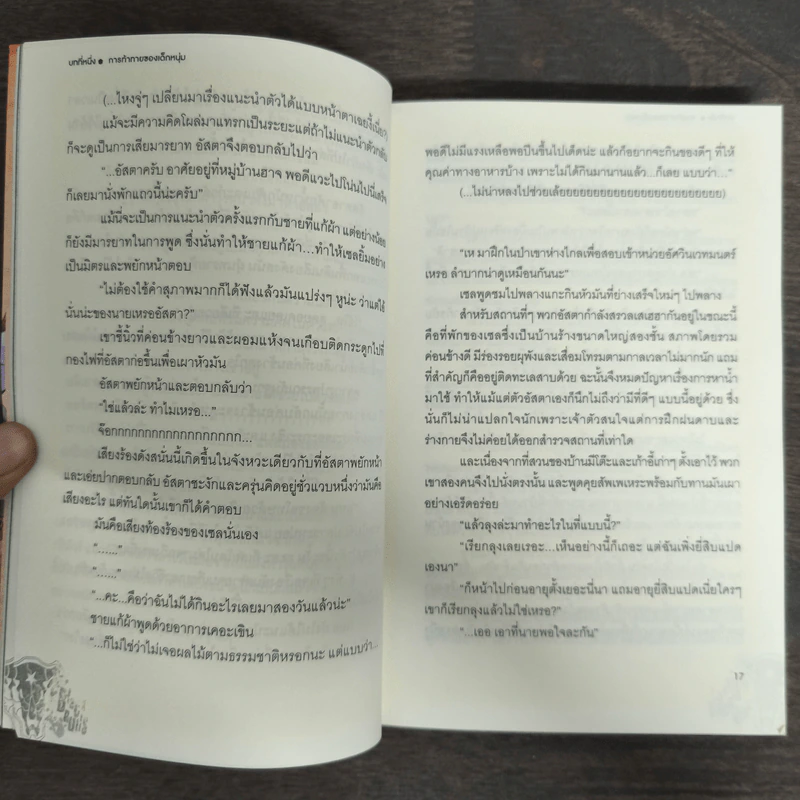 บทที่หนึ่ง ● การท้าทายของเด็กหนุ่ม
(...ไหงจู่ๆ เปลี่ยนมาเรื่องแนะนำตัวได้แบบหน้าตาเฉยงี้เนี่ย?)
แม้จะมีความคิดโผล่มาแทรกเป็นระยะแต่ถ้าไม่แนะนำตัวกลับ
ก็จะดูเป็นการเสียมารยาท อัสตาจึงตอบกลับไปว่า
"...อัสตาครับ อาศัยอยู่ที่หมู่บ้านฮาจ พอดีแวะไปโน่นไปนี่เสร็จ
ก็เลยมานั่งพักแถวนี้น่ะครับ"
แม้นี่จะเป็นการแนะนำตัวครั้งแรกกับชายที่แก้ผ้า แต่อย่างน้อย
ก็ยังมีมารยาทในการพูด ซึ่งนั่นทำให้ชายแก้ผ้า...ทำให้เซลยิ้มอย่าง
เป็นมิตรและพยักหน้าตอบ
"ไม่ต้องใช้คำสุภาพมากก็ได้ฟังแล้วมันแปร่งๆ หูน่ะ ว่าแต่ไอ้
นั่นน่ะของนายเหรออัสตา?"
เขาชี้นิ้วที่ค่อนข้างยาวและผอมแห้งจนเกือบติดกระดูกไปที่
กองไฟที่อัสตาก่อขึ้นเพื่อเผาหัวมัน
อัสตาพยักหน้าและตอบกลับว่า
"ใช่แล้วล่ะ ทำไมเหรอ..."
จ๊อกกกกกกกกกกกกกกกกกก...
เสียงร้องดังสนั่นนี้เกิดขึ้นในจังหวะเดียวกับที่อัสตาพยักหน้า
และเอ่ยปากตอบกลับ อัสตาชะงักและครุ่นคิดอยู่ชั่วแวบหนึ่งว่ามันคือ
เสียงอะไร แต่ทันใดนั้นเขาก็ได้คำตอบ
มันคือเสียงท้องร้องของเซลนั่นเอง
"......"
"......"
"...คะ...คือว่าฉันไม่ได้กินอะไรเลยมาสองวันแล้วน่ะ"
ชายแก้ผ้าพูดด้วยอาการเคอะเขิน
"...ก็ไม่ใช่ว่าไม่เจอผลไม้ตามธรรมชาติหรอกนะ แต่แบบว่า...
พอดีไม่มีแรงเหลือพอปีนขึ้นไปเด็ดน่ะ แล้วก็อยากจะกินของดีๆ ที่ให้
คุณค่าทางอาหารบ้าง เพราะไม่ได้กินมานานแล้ว...ก็เลย แบบว่า..."
(...ไม่น่าหลงไปช่วยเล้ยยยยยยยยยยยยยยยยยยยยยยยยย)
"เห มาฝึกในป่าเขาห่างไกลเพื่อสอบเข้าหน่วยอัศวินเวทมนตร์
เหรอ ลำบากน่าดูเหมือนกันนะ"
เซลพูดชมไปพลางแกะกินหัวมันที่ย่างเสร็จใหม่ๆ ไปพลาง
สำหรับสถานที่ๆ พวกอัสตากำลังสรวลเสเฮฮากันอยู่ในขณะนี้
คือที่พักของเซลซึ่งเป็นบ้านร้างขนาดใหญ่สองชั้น สภาพโดยรวม
ค่อนข้างดี มีร่องรอยผุพังและเสื่อมโทรมตามกาลเวลาไม่มากนัก แถม
ที่สำคัญก็คืออยู่ติดทะเลสาบด้วย ฉะนั้นจึงหมดปัญหาเรื่องการหาน้ำ
มาใช้ ทำให้แม้แต่ตัวอัสตาเองก็นึกไม่ถึงว่ามีที่ดีๆ แบบนี้อยู่ด้วย ซึ่ง
นั่นก็ไม่น่าแปลกใจนักเพราะเจ้าตัวสนใจแต่การฝึกฝนดาบและ
ร่างกายจึงไม่ค่อยได้ออกสำรวจสถานที่เท่าใด
และเนื่องจากที่สวนของบ้านมีโต๊ะและเก้าอี้เก่าๆ ตั้งเอาไว้ พวก
เขาสองคนจึงไปนั่งตรงนั้น และพูดคุยสัพเพเหระพร้อมกับทานมันเผา
อย่างเอร็ดอร่อย
"แล้วลุงล่ะมาทำอะไรในที่แบบนี้?"
"เรียกลุงเลยเรอะ...เห็นอย่างนี้ก็เถอะ แต่ฉันเพิ่งยี่สิบแปด
เองนา"
"ก็หน้าไปก่อนอายุตั้งเยอะนี่นา แถมอายุยี่สิบแปดเนี่ยใครๆ
เขาก็เรียกลุงแล้วไม่ใช่เหรอ?"
"...เออ เอาที่นายพอใจละกัน"
17